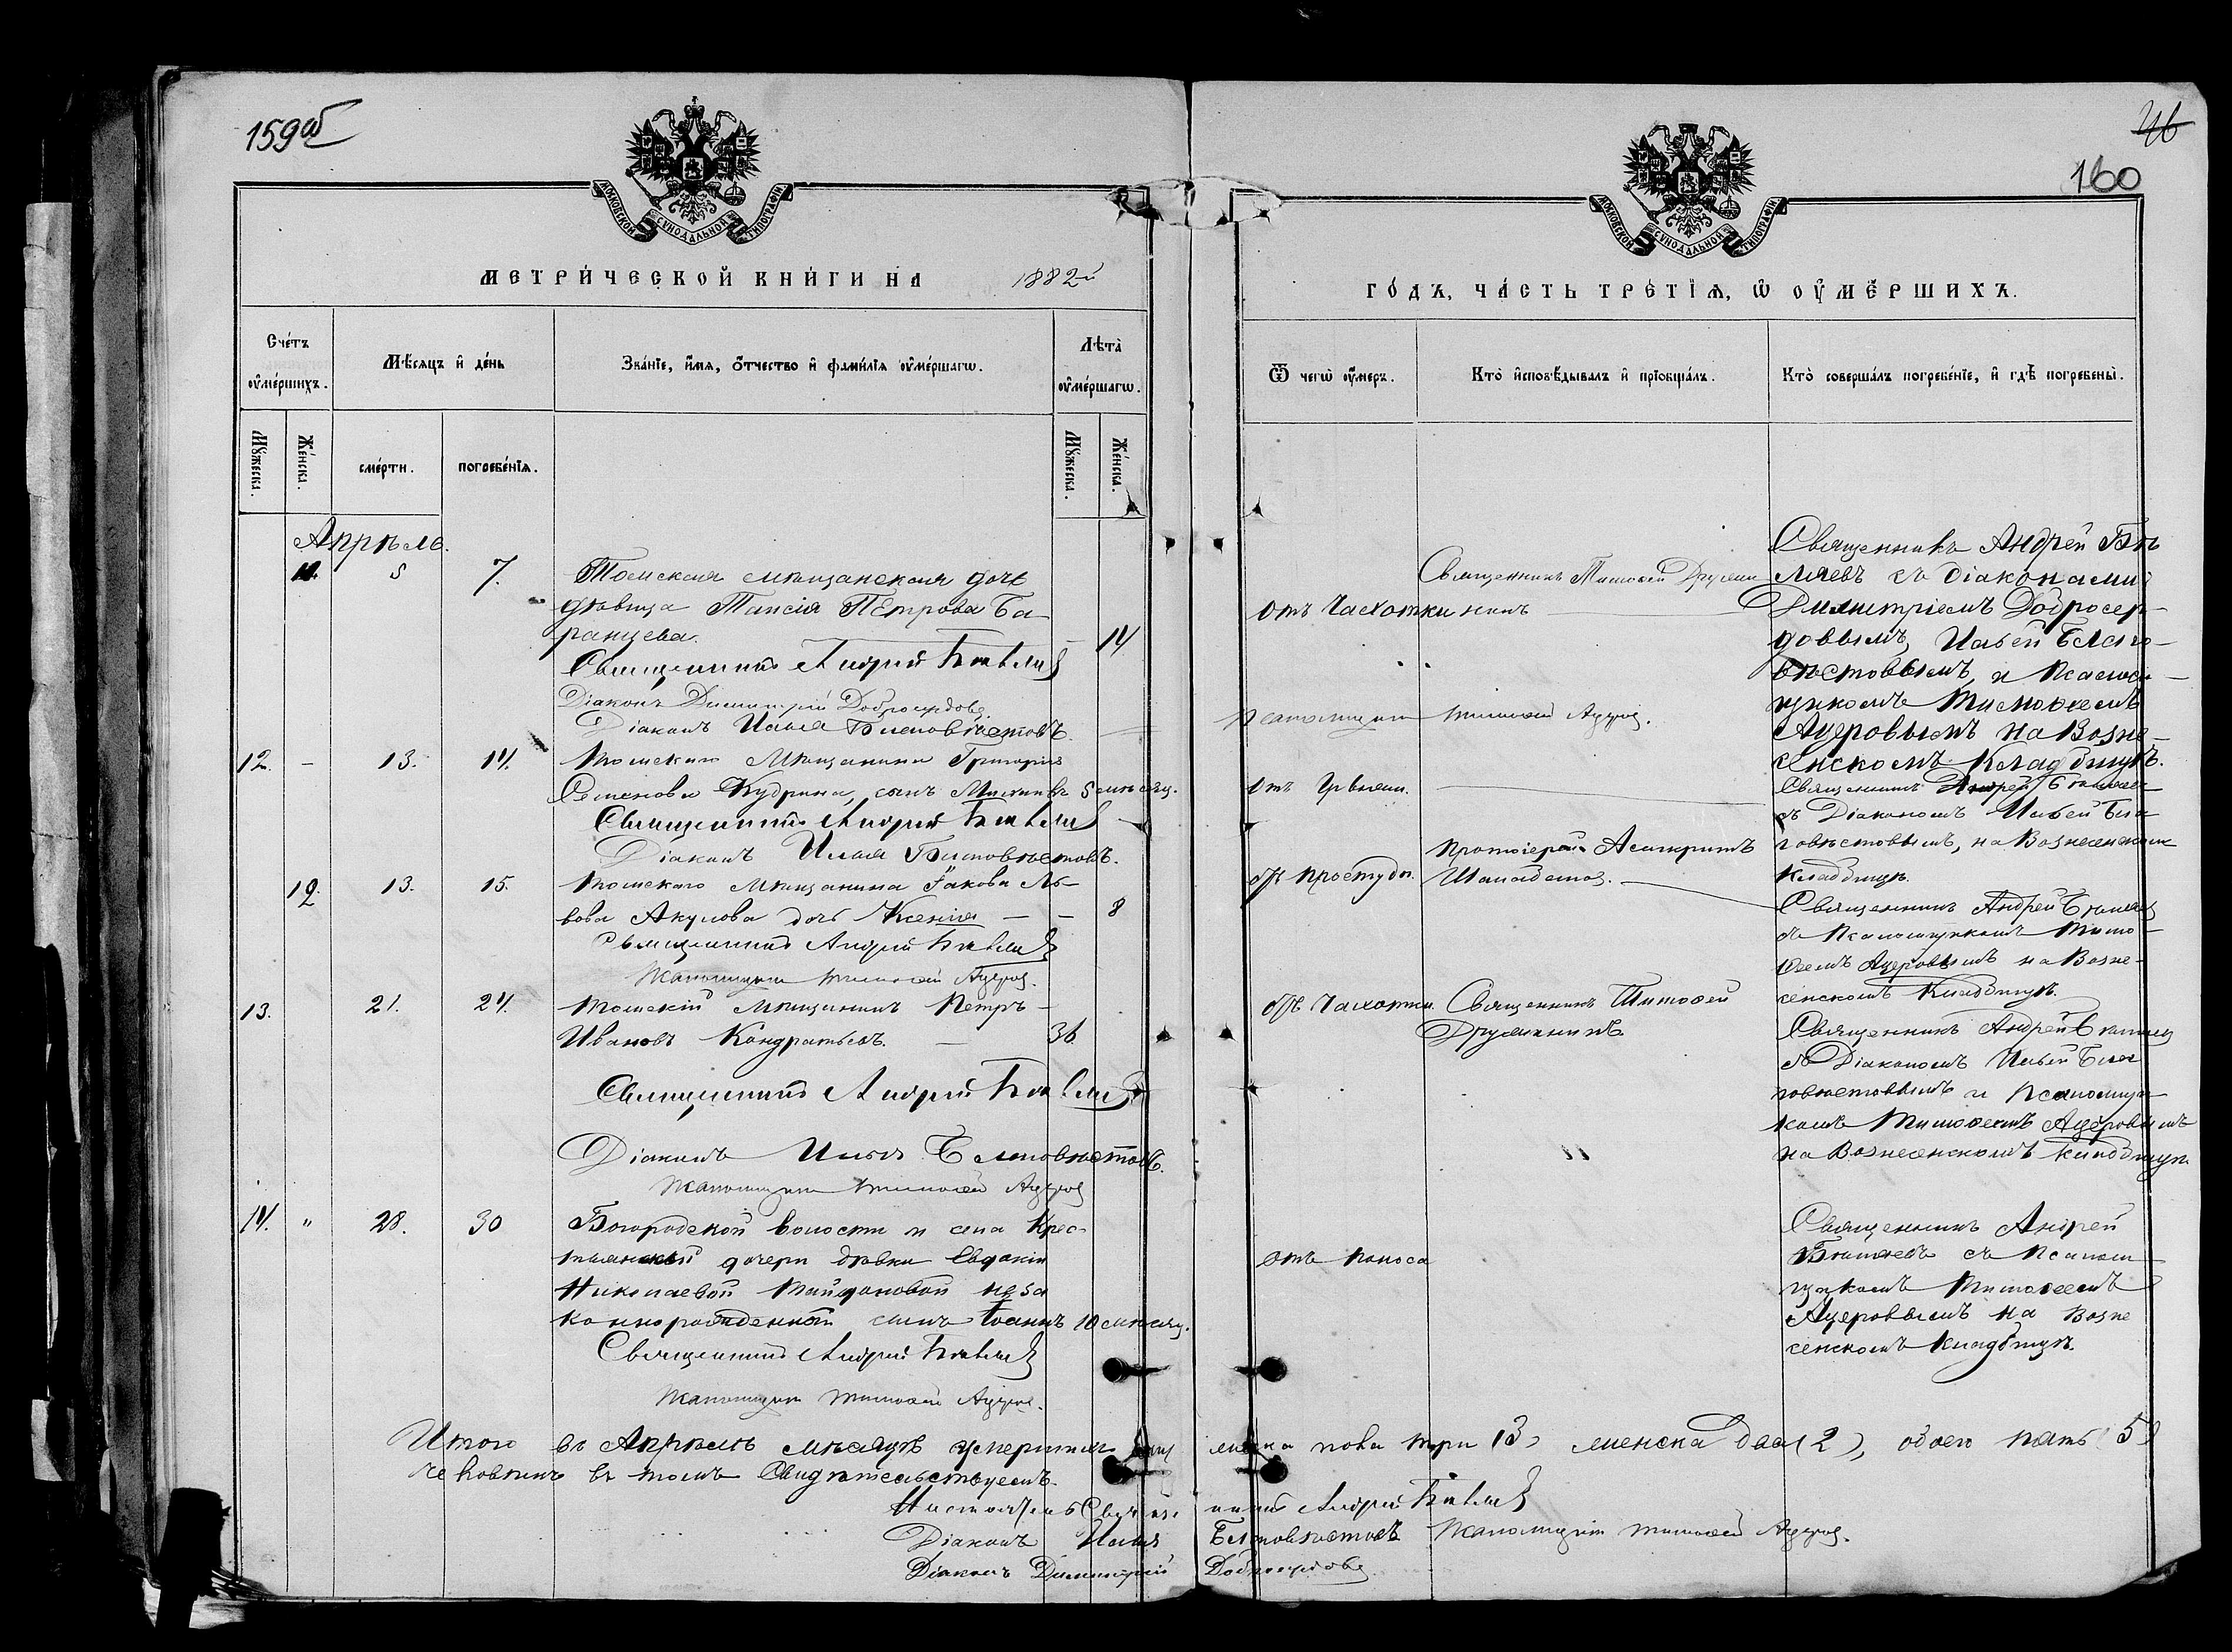 159об
46
160
МОСКОВСКОЙ СѴНОДАЛЬНОЙ ТИПОГРАФІИ
МОСКОВСКОЙ СѴНОДАЛЬНОЙ ТИПОГРАФІИ
МЕТРИ́ЧЕСКОЙ КНИ́ГИ НА 1882-й
ГО́ДЪ, ЧА́СТЬ ТРЕ́ТІѦ, Ѿ ОУМЕ́РШИХЪ.
Сче́тъ оуме́ршихъ.
Мѣ́сяцъ и де́нь
Зва́ніе, и́мя, о́тчество и фами́лія оуме́ршагѡ.
Лѣта̀ оуме́ршагѡ.
Ѿ чегѡ̀ оу́меръ.
Кто̀ исповѣ́дывалъ и пріобща́лъ.
Кто̀ соверша́лъ погребе́ніе, и гдѣ̀ погребены̀.
Му́жеска.
Же́нска.
сме́рти.
погребе́нія.
Му́жеска.
Же́нска.
Апрѣль.
5 7. Томская мѣщанская дочь
дѣвица Таисія Петрова Ба-
ранцева. 14
Священникъ Андрей Бѣляевъ
Діаконъ Димитрій Добросердовъ
Діаконъ Илья Благовѣстовъ.
Отъ Чахотки
Священникъ Тимофей
Псаломщикъ Тимофей Ацеровъ.
Священникъ Андрей Бѣ
ляевъ съ діаконами
Димитріемъ Добросер-
довымъ, Ильей Благо-
вѣстовымъ, и Псаломщи-
цикомъ Тимофеемъ
Ацеровымъ на Возне-
сенскомъ Кладбищѣ.
12. – 13. 14. Томскаго Мѣщанина Григорія
Семенова Кудрина, сынъ 5 мѣсяц.
Священникъ Андрей Бѣляевъ
Діаконъ Илья Благовѣстовъ.
Отъ
Священникъ Андрей Бѣляевъ
съ Діакономъ Ильей Бла-
говѣстовымъ, на Вознесенскомъ
Кладбищѣ.
12 13. 15. Томскаго мѣщанина Іакова Ль-
вова Акулова дочь Ксенія – – 8
Священникъ Андрей Бѣляевъ
Псаломщикъ Тимофей Ацеровъ.
отъ простуды.
Протоіерей Асинкритъ
Священникъ Андрей Бѣляевъ
съ Псаломщикомъ Тимо-
феемъ Ацеровымъ на Возне-
сенскомъ Кладбищѣ.
13. 21. 24. Томскій мѣщанинъ Петръ
Ивановъ Кондратьевъ. 36
Священникъ Андрей Бѣляевъ
Діаконъ Илья Благовѣстовъ.
Псаломщикъ Тимофей Ацеровъ
отъ Чахотки.
Священникъ Тимофей
Священникъ Андрей Бѣляевъ
съ Діакономъ Ильей Благо
говѣстовымъ и Псаломщи-
комъ Тимофеемъ Ацеровымъ
на Вознесенскомъ кладбищѣ
14. " 28. 30 Богородской волости и села Крес-
тьянской дочери дѣвки Евдокіи
Николаевой Тайдоновой неза
коннорожденный сынъ Іоаннъ 10 мѣсяц.
Священникъ Андрей Бѣляевъ
Псаломщикъ Тимофей Ацеровъ.
отъ поноса
Священникъ Андрей
Бѣляевъ съ Псалом
щикомъ Тимофеемъ
Ацеровымъ на Возне
сенскомъ кладбищѣ.
Итого въ Апрѣлѣ мѣсяцѣ умершихъ муж
меска пола три (3) женска два (2), обоего пять (5)
человѣкъ въ томъ Свидѣтельствуемъ.
Настоятель Священникъ Андрей Бѣляевъ
Діаконъ Илья Благовѣстовъ Псаломщикъ Тимофей Ацеровъ.
Діаконъ Димитрій Добросердовъ